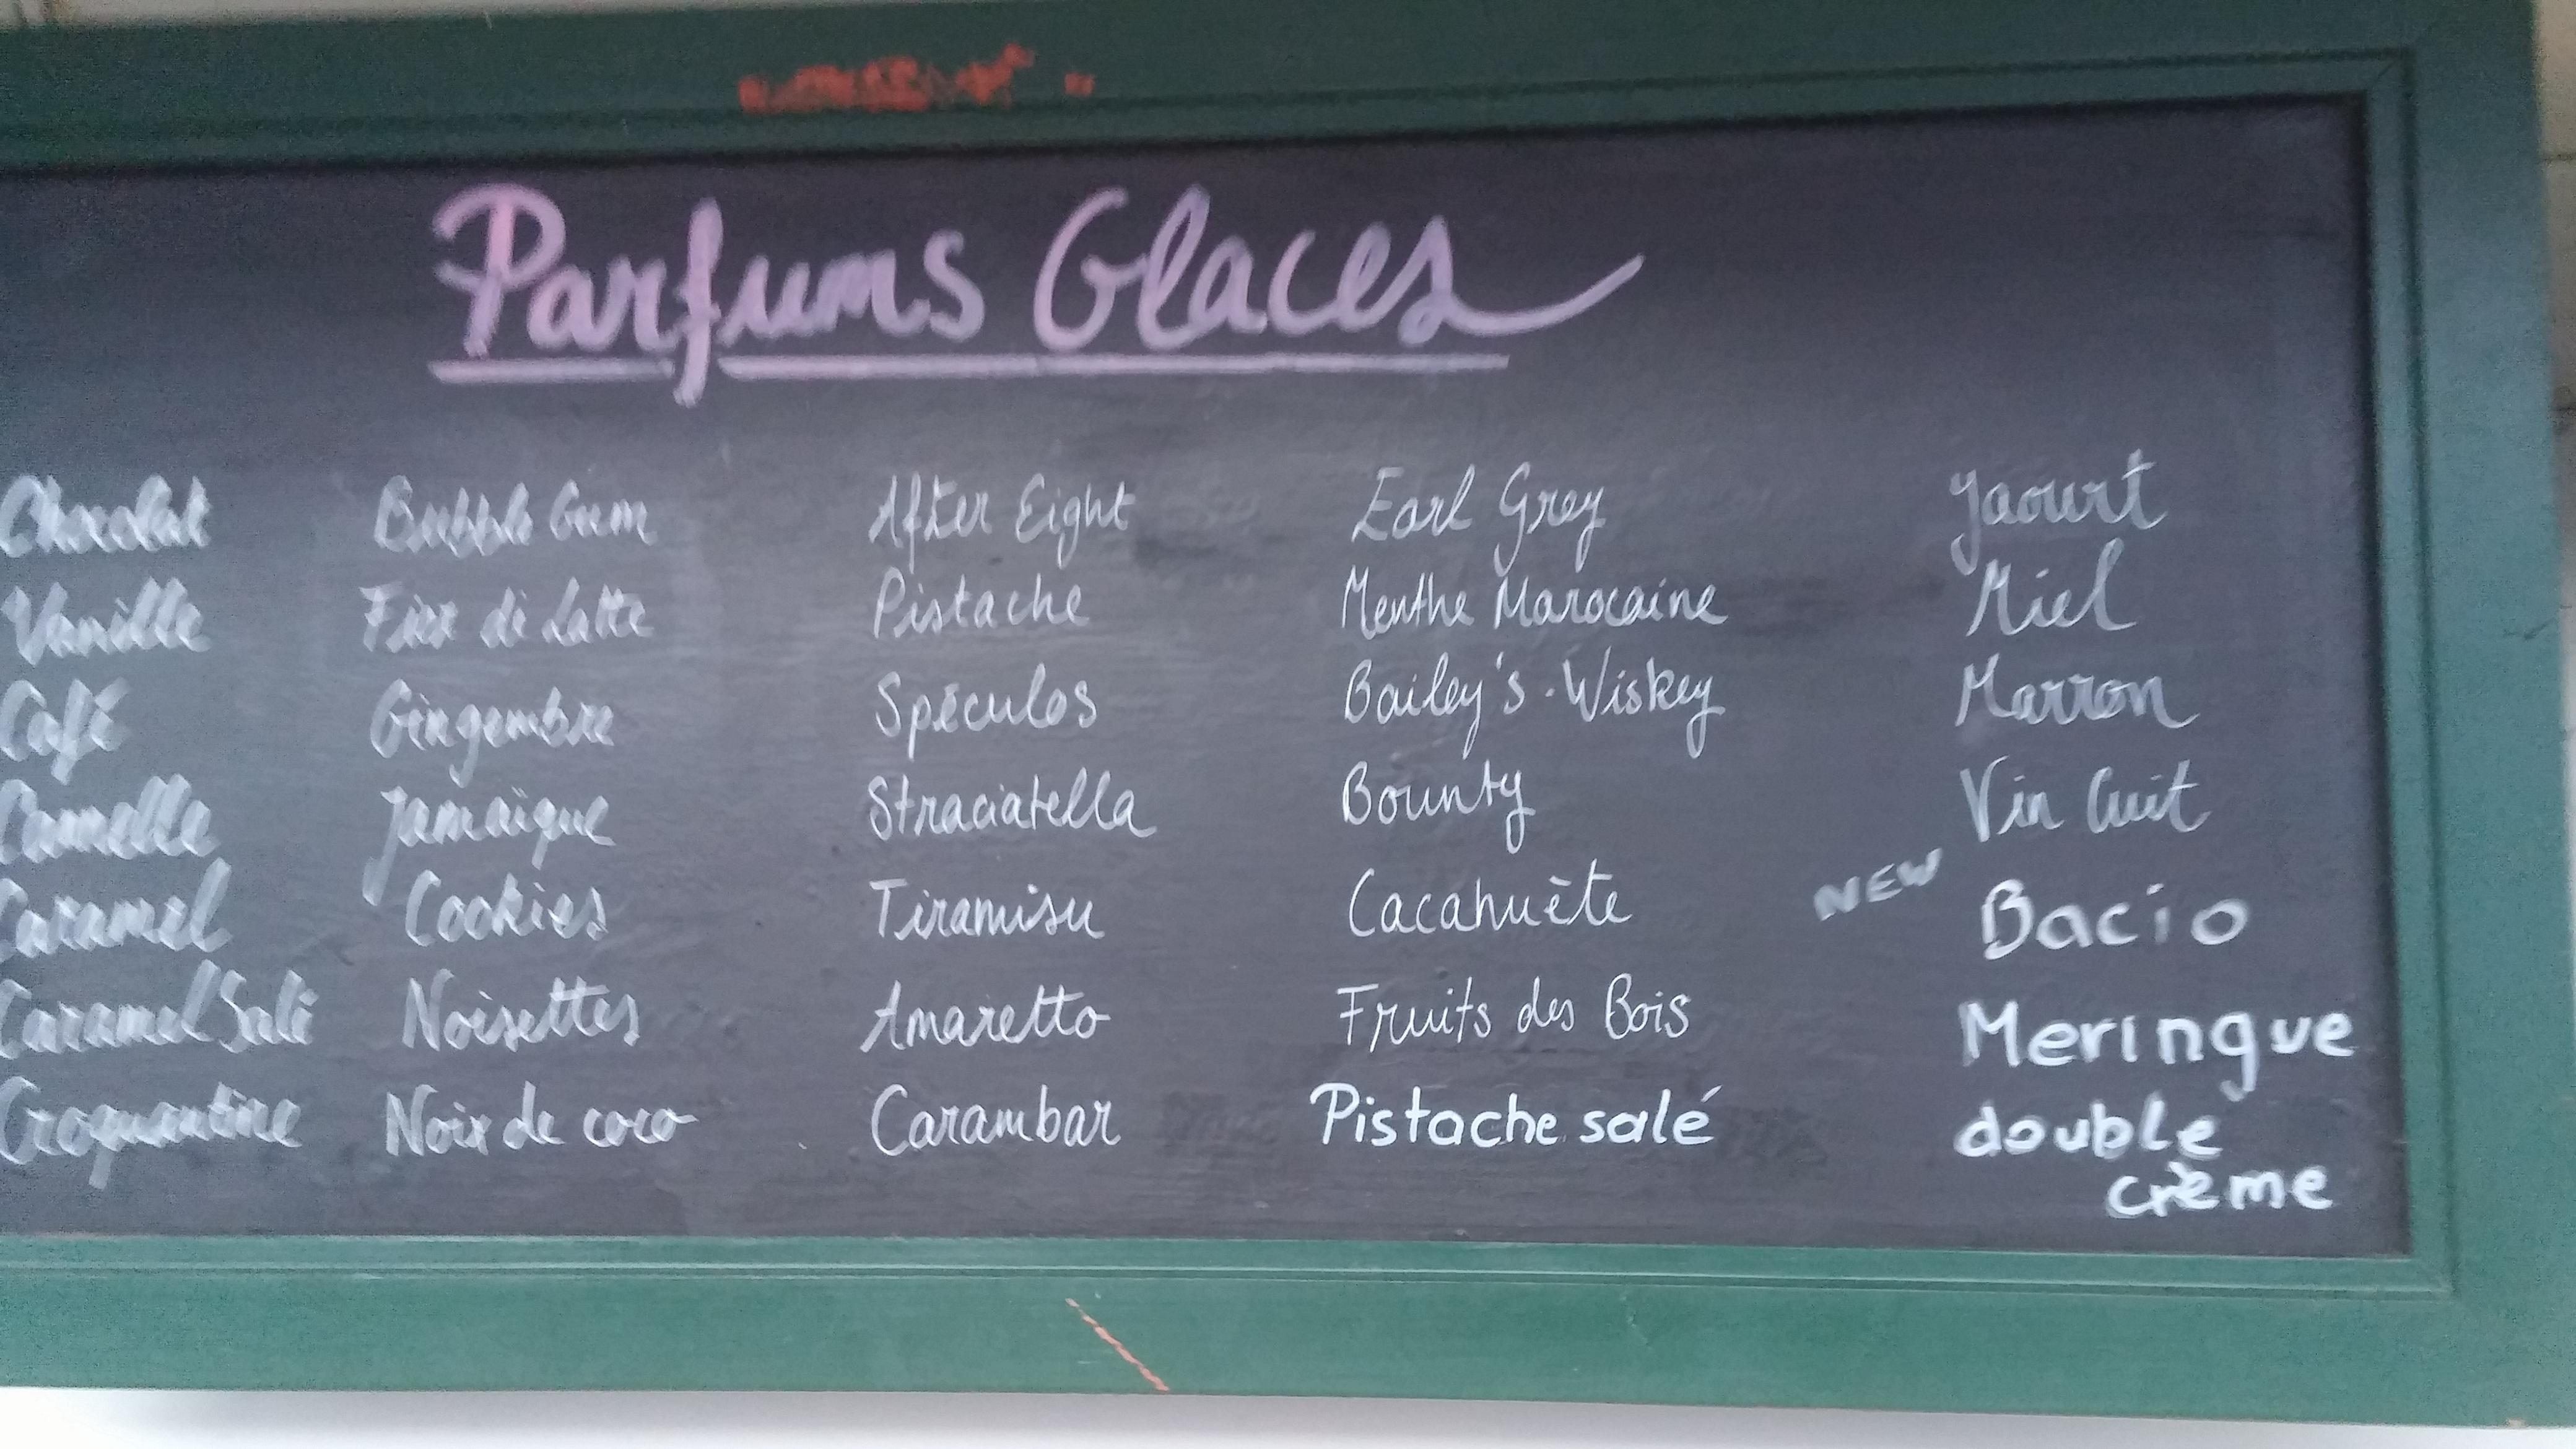 Parfums Glaces
Chocolat
Vanille
Café
Cannelle
Caramel
Caramel Salé
Croquantine
Bubble Gum
Fior di Latte
Gingembre
Jamaïque
Cookies
Noisettes
Noix de coco
After Eight
Pistache
Spéculos
Straciatella
Tiramisu
Amaretto
Carambar
Earl Grey
Menthe Marocaine
Bailey's-Wiskey
Bounty
Cacahuète
Fruits des Bois
Pistache salé
Yaourt
Miel
Marron
Vin Cuit
NEW
Bacio
Meringue
double
crème